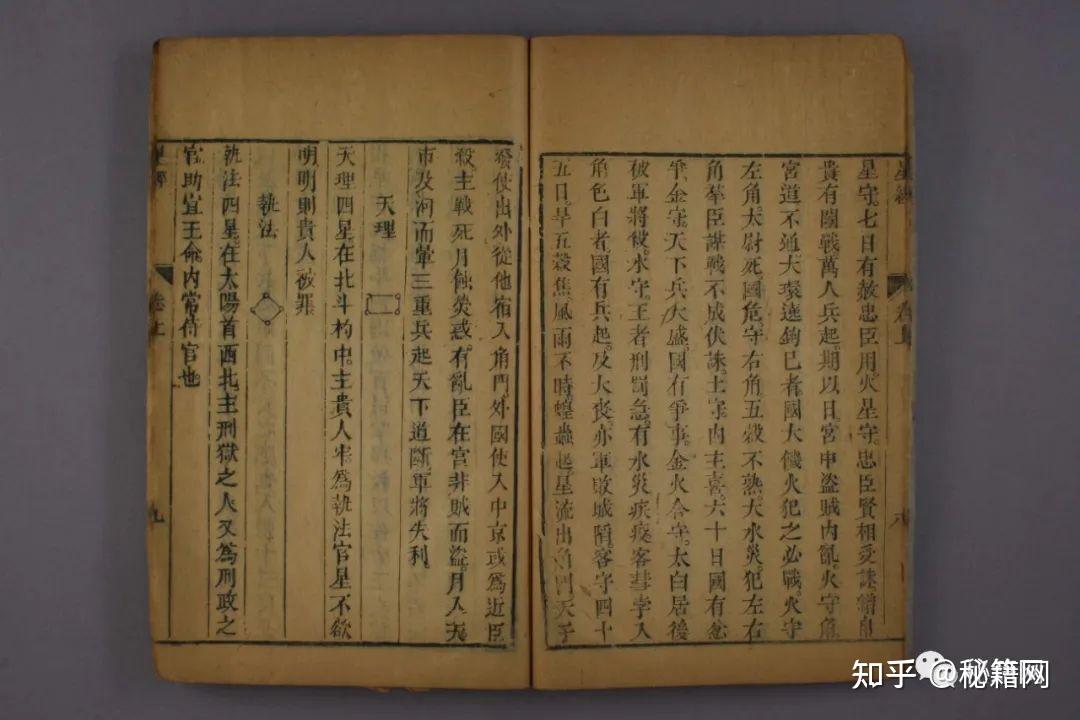 星經
卷上
八
星守七日有赦忠臣用火星守忠臣賢相受誅繒帛
貴有鬪戰萬人兵起期以日宮中盜賊內亂火守角
宮道不通大環遶鉤巳者國大饑火犯之必戰火守
左角太尉死國危守右角五穀不熟大水災犯左右
角羣臣謀戰不成伏誅土守內主喜六十日國有忿
爭金守天下兵大盛國有爭事金火合守太白居後
破軍將被水守王者刑罰急有水災疾疫客彗孛入
角色白者國有兵起及大喪亦軍敗城陷客守四十
五日旱五穀焦風雨不時蝗蟲起星流出角門天子
發使出外從他宿入角門外國使入中京或為近臣
殺主戰死月蝕熒惑有亂臣在宮非賊而盜月入天
市及河而暈三重兵起天下道斷軍將失利
天理
天理四星在北斗杓中主貴人牢為執法官星不欲
明明則貴人被罪
執法
執法四星在太陽首西北主刑獄之人又為刑政之
官助宣王命內常侍官也
星經
卷上
九
知乎 @秘籍网